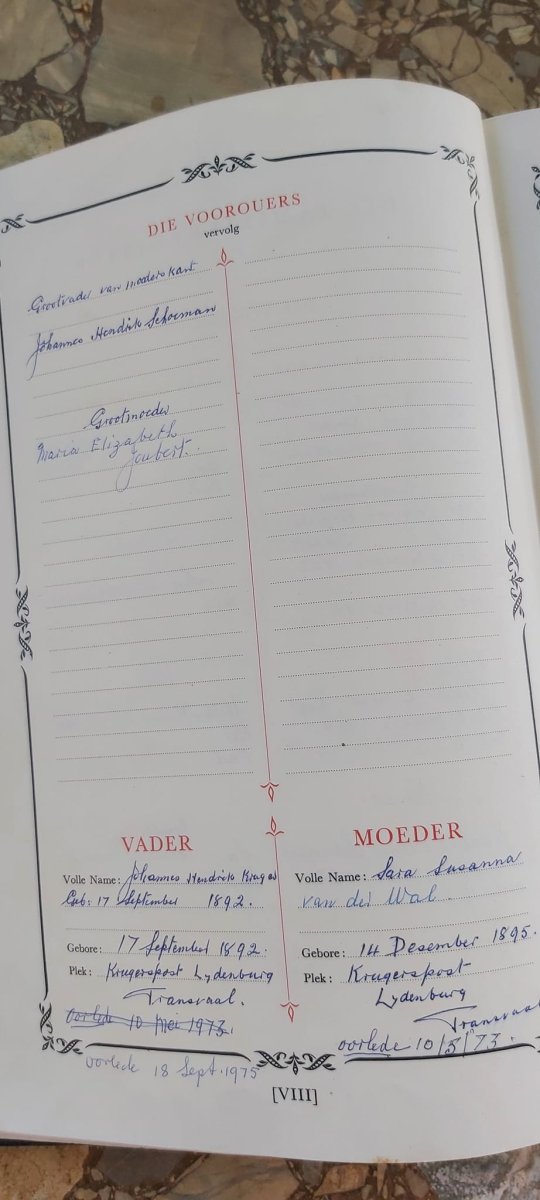 DIE VOOROUERS
vervolg
Grootvader van moeders kant
Johannes Hendrik Schoeman
Grootmoeder
Maria Elizabeth
Joubert.
VADER
Volle Name: Johannes Hendrik Kruger
Geb: 17 September 1892.
Gebore: 17 September 1892.
Plek: Krugerspost Lydenburg
Transvaal.
oorlede 10 Mei 1973.
oorlede 18 Sept. 1975
MOEDER
Volle Name: Sara Susanna
van der Wal.
Gebore: 14 Desember 1895.
Plek: Krugerspost
Lydenburg
Transvaal
oorlede 10/5/73.
[VIII]